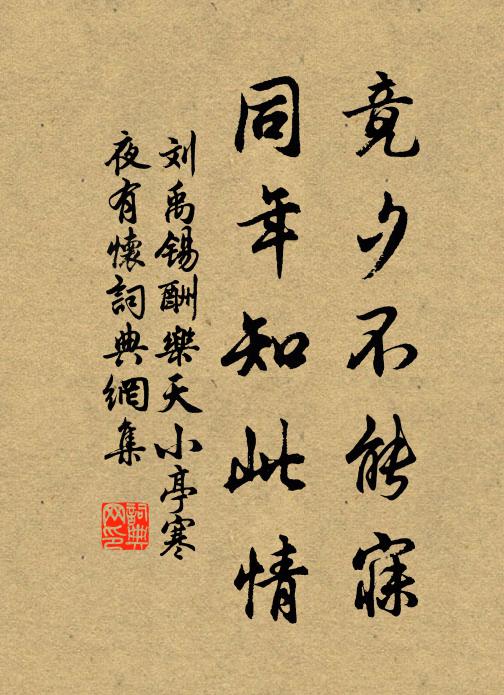 竟夕不能寐
同年知此情
刘禹锡酬樂天小亭寒
夜有懷詞典網集
詞典
网印